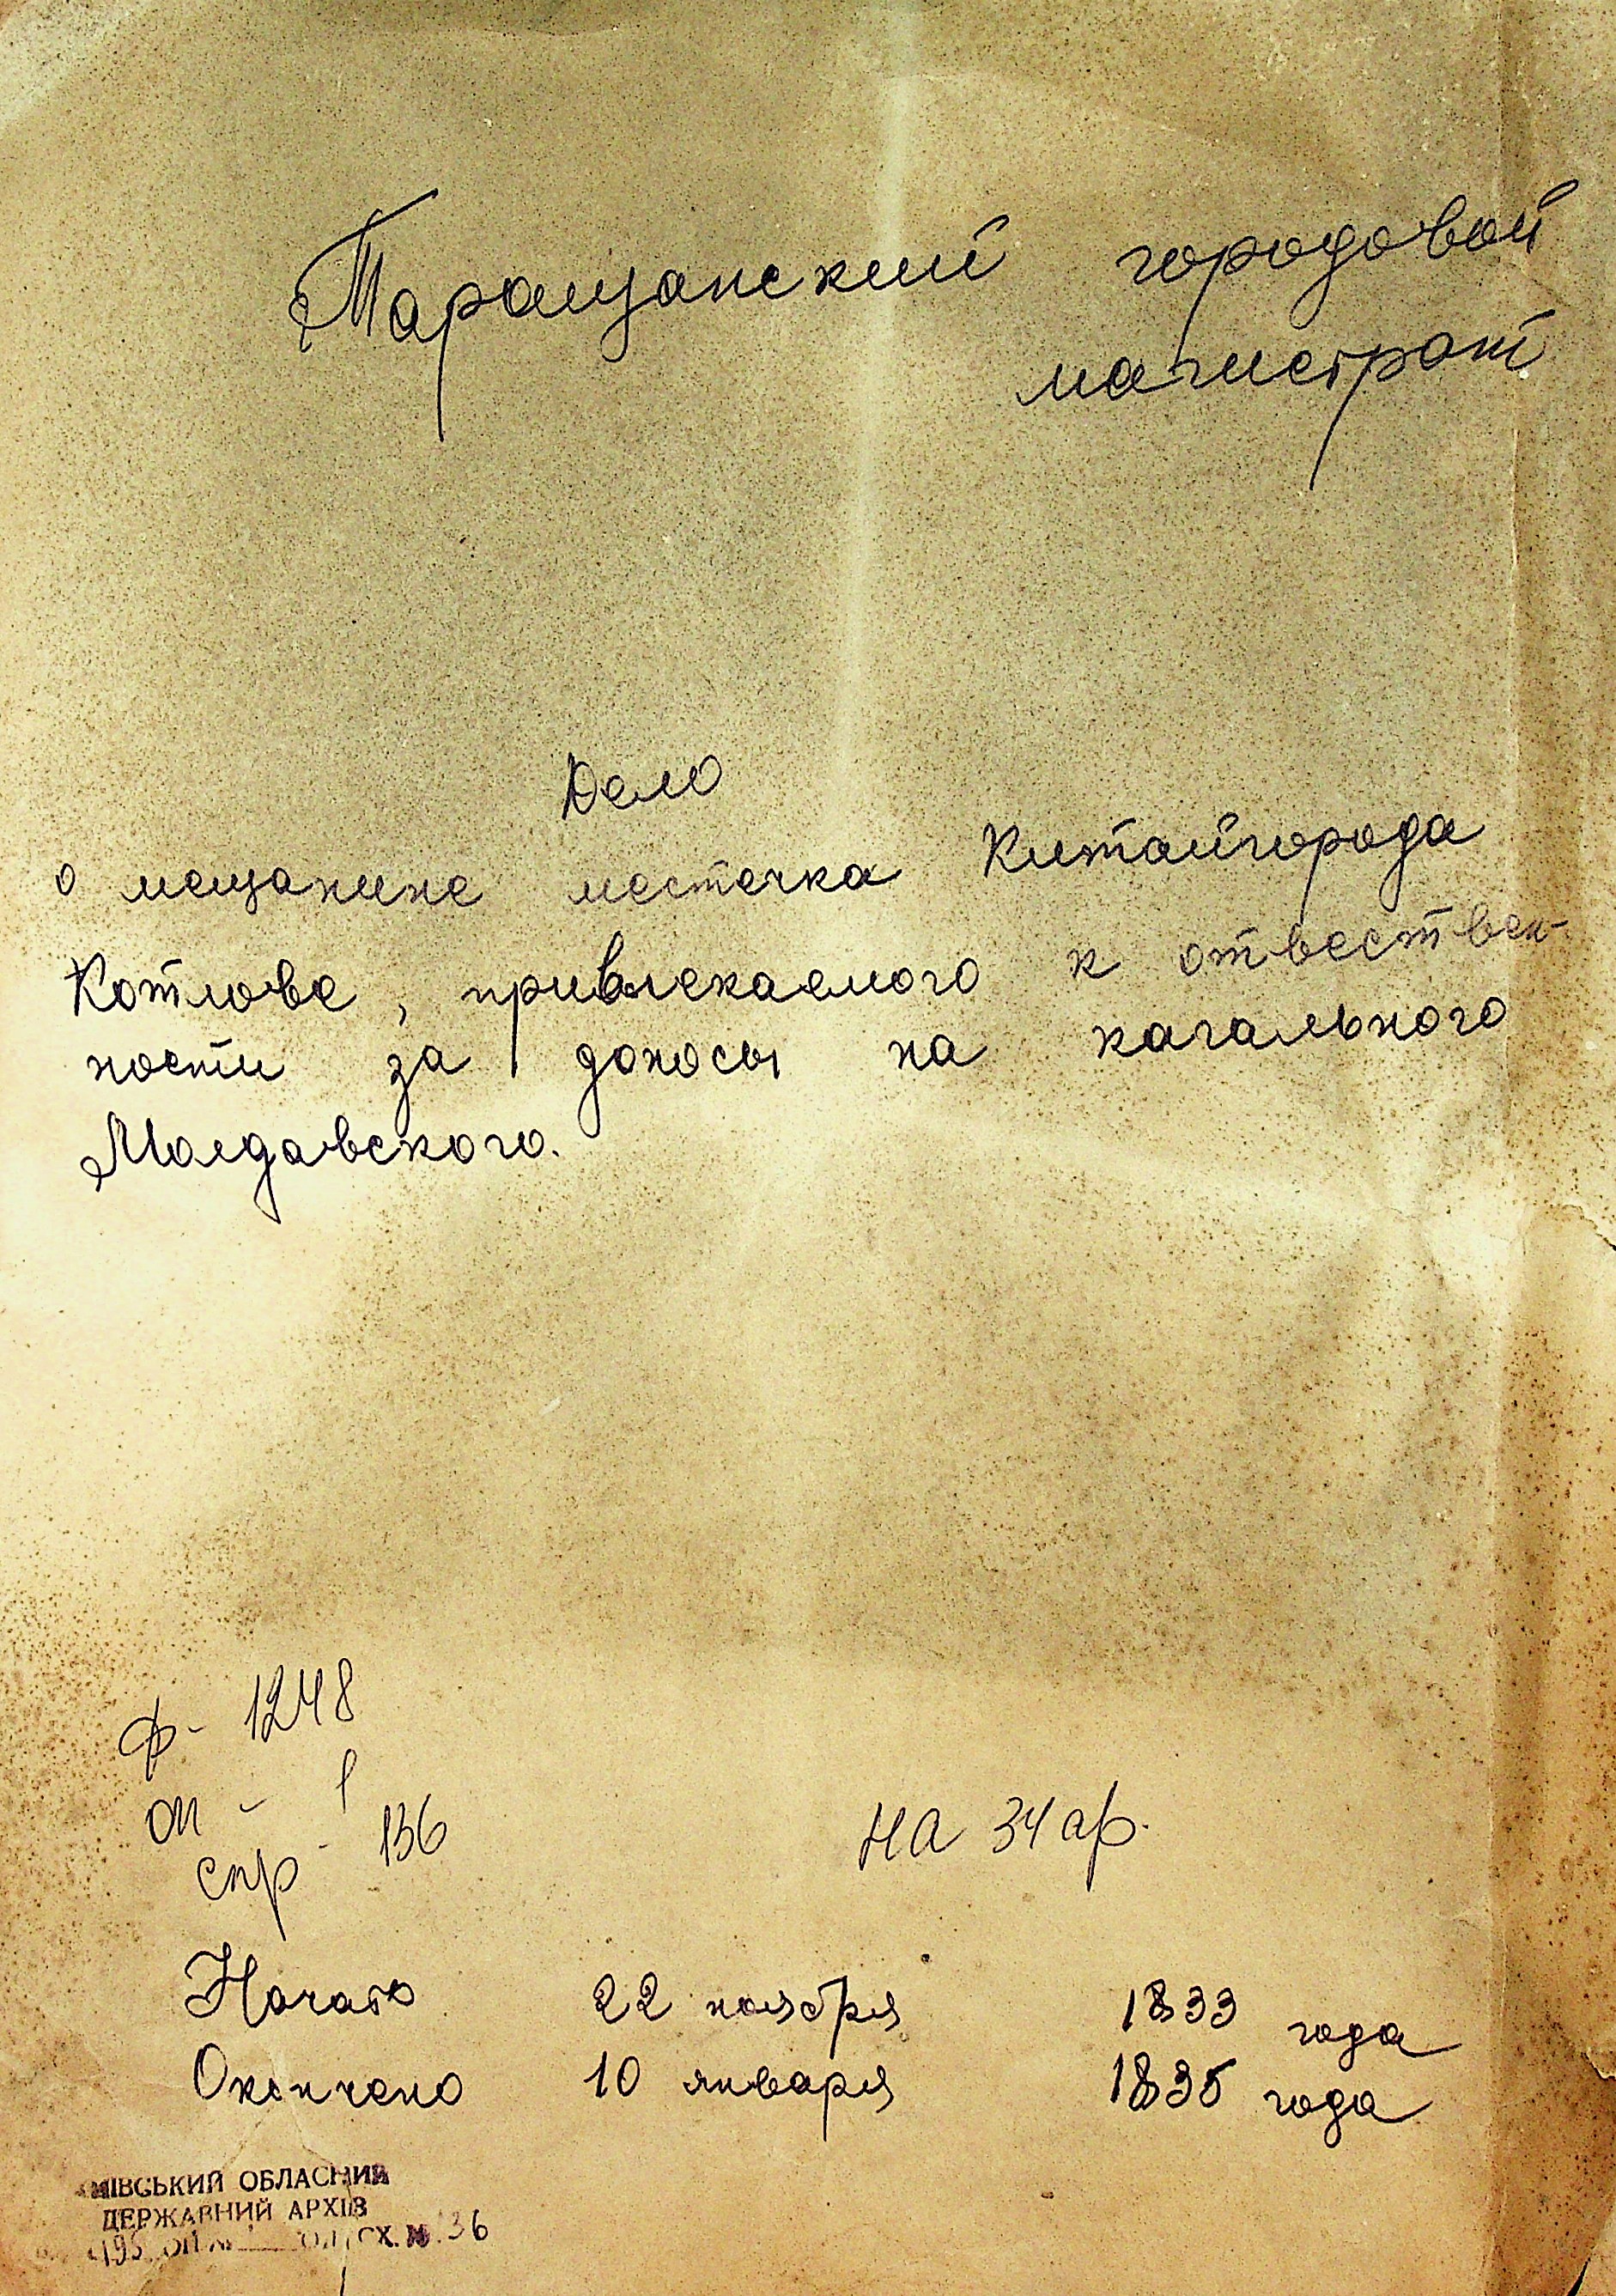 Таращанский городовой
магистрат
Дело
о мещанине местечка Китайгорода
Котлове, привлекаемого к ответствен-
ности за доносы на кагального
Молдавского.
ф- 1248
оп - 1
спр - 136
на 34 ар.
Начато 22 ноября 1833 года
Окончено 10 января 1835 года
КИЇВСЬКИЙ ОБЛАСНИЙ
ДЕРЖАВНИЙ АРХІВ